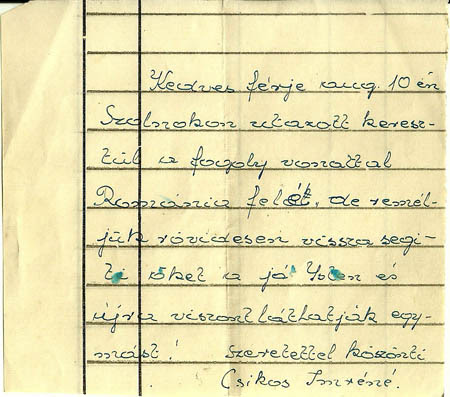 Kedves férje aug. 10 én
Szolnokon utazott keresz-
tül a fogoly vonattal
Románia felék, de remél-
jük rövidesen vissza segi-
ti őket a jó Isten és
újra viszontláthatják egy-
mást! szeretettel köszönti
Csikos Imréné.